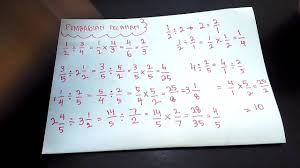 PEMBAGIAN PECAHAN
1/2 ÷ 3/4 = 1/2 × 4/3 = 4/6 = 2/3
3/5 ÷ 2 1/2 = 3/5 ÷ 5/2 = 3/5 × 2/5 = 6/25
1/4 ÷ 2/5 = 5/2 = 25/8 = 3 1/8
2 4/5 ÷ 3 1/2 = 14/5 ÷ 7/2 = 14/5 × 2/7 = 28/35 = 4/5
1/2 ÷ 2 =
= 1/2 × 1/2 = 1/4
4 ÷ 2/5 = 4/1 ÷ 2/5
= 4/1 × 5/2 = 20/2
= 10